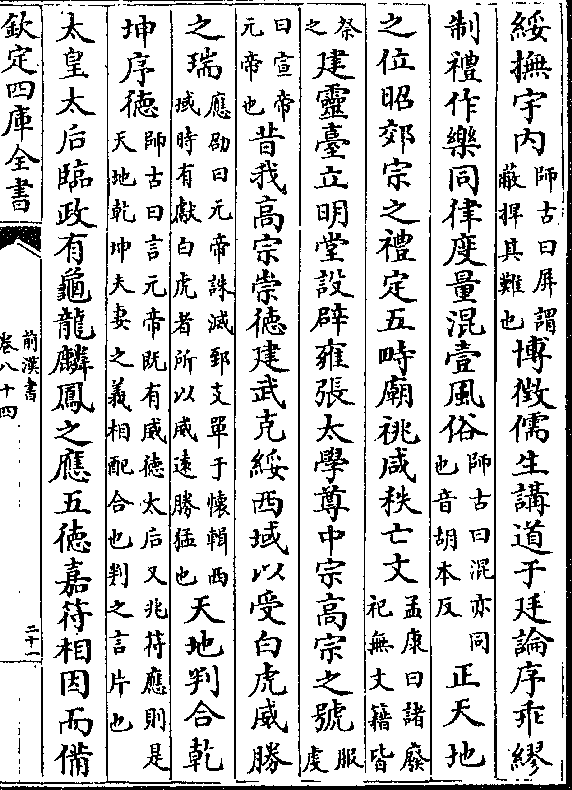 綏撫宇内師古曰屏謂蔽捍其難也博徵儒生講道于廷論序乖繆
制禮作樂同律度量混壹風俗師古曰混亦同也音胡本反正天地
之位昭郊宗之禮定五畤廟祧咸秩亡文孟康曰諸廢祀無文籍皆
祭之建靈臺立明堂設辟雍張太學尊中宗高宗之號服虔
曰宣帝元帝也昔我高宗崇徳建武克綏西域以受白虎威勝
之瑞應劭曰元帝誅滅郅支單于懷輯西域時有獻白虎者所以威遠勝猛也天地判合乾
坤序徳師古曰言元帝既有威徳太后又兆符應則是天地乾坤夫妻之義相配合也判之言片也
太皇太后臨政有龜龍麟鳳之應五徳嘉符相因而備
欽定四庫全書
前漢書
卷八十四
二十一